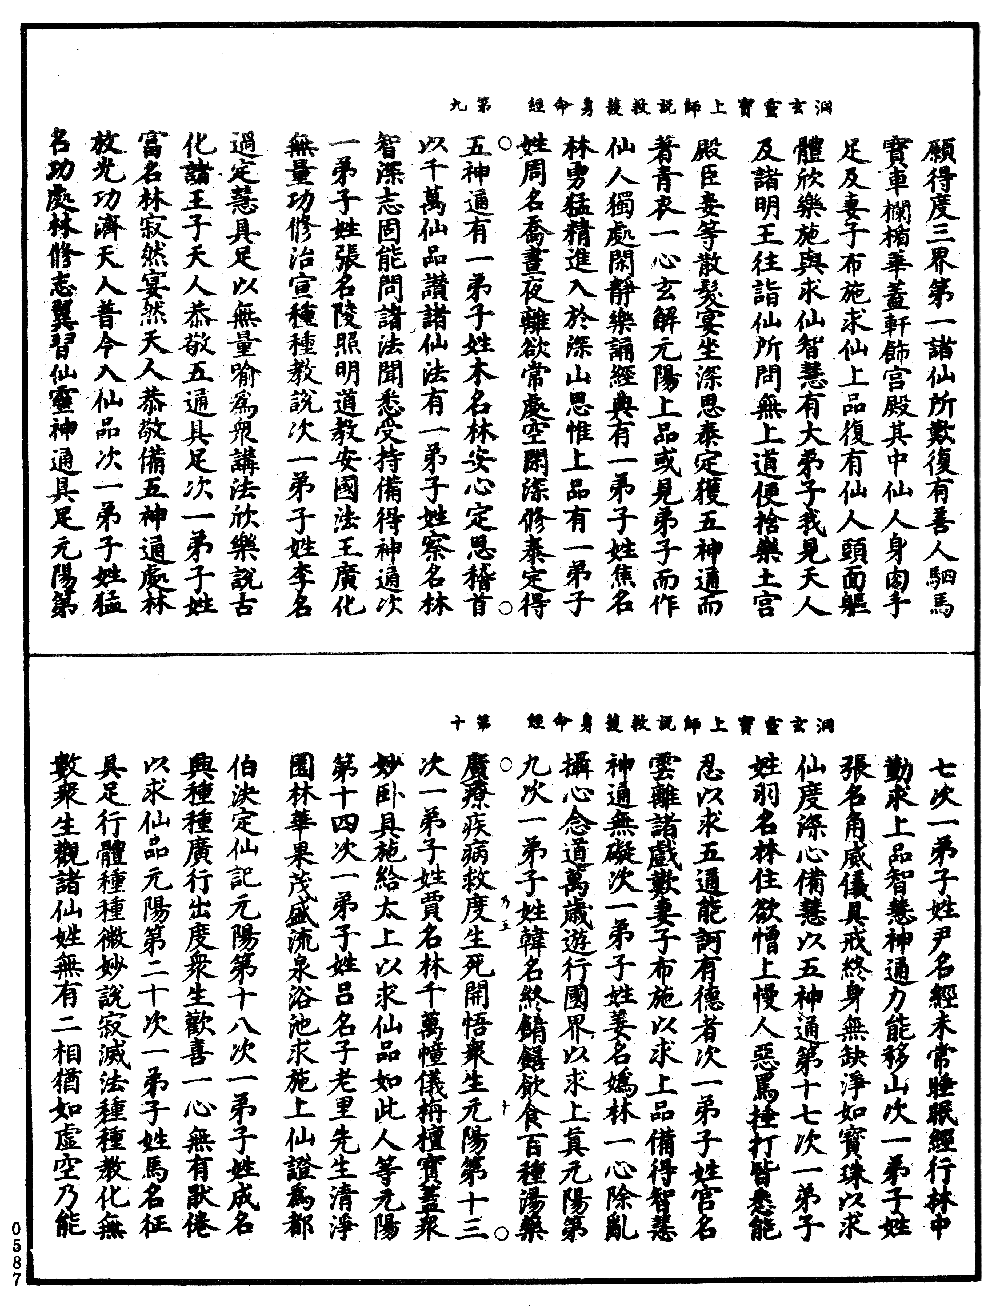 洞玄靈寶上師說救護身命經　第九
願得度三界第一諸仙所歎復有善人駟馬
寶車欄楯華蓋軒飾宮殿其中仙人身肉手
足及妻子布施求仙上品復有仙人頭面軀
體欣樂施與求仙智慧有大弟子我見天人
及諸明王往詣仙所問無上道便捨樂土宮
殿臣妾等散髮宴坐深思泰定獲五神通而
著青衣一心玄解元陽上品或見弟子而作
仙人獨處閑靜樂誦經典有一弟子姓焦名
林勇猛精進入於深山思惟上品有一弟子
姓周名喬晝夜離欲常處空閑深修泰定得
五神通有一弟子姓木名林安心定思稽首
以千萬仙品讚諸仙法有一弟子姓察名林
智深志固能問諸法聞悉受持備得神通次
一弟子姓張名陵照明道教安國法王廣化
無量功修治宣種種教說次一弟子姓李名
過定慧具足以無量喻爲衆講法欣樂說古
化諸王子天人恭敬五通具足次一弟子姓
富名林寂然宴然天人恭敬備五神通處林
放光功濟天人普令入仙品次一弟子姓猛
名功處林修志翼習仙靈神通具足元陽第
洞玄靈寶上師說救護身命經　第十
七次一弟子姓尹名經未常睡眠經行林中
勤求上品智慧神通力能移山次一弟子姓
張名角威儀具戒終身無缺淨如寶珠以求
仙度深心備慧以五神通第十七次一弟子
姓羽名林住欲憎上慢人惡罵捶打皆悉能
忍以求五通能訶有德者次一弟子姓官名
雲離諸戲歎妻子布施以求上品備得智慧
神通無礙次一弟子姓姜名嬌林一心除亂
攝心念道萬歲遊行國界以求上真元陽第
九次一弟子姓韓名終餚饍飲食百種湯藥
廣療疾病救度生死開悟衆生元陽第十三
次一弟子姓賈名林千萬幢儀栴檀寶蓋衆
妙卧具施給太上以求仙品如此人等元陽
第十四次一弟子姓呂名子老里先生清淨
園林華果茂盛流泉浴池求施上仙證爲都
伯決定仙記元陽第十八次一弟子姓成名
興種種廣行出度衆生歡喜一心無有厭倦
以求仙品元陽第二十次一弟子姓馬名征
具足行體種種微妙說寂滅法種種教化無
數衆生觀諸仙姓無有二相猶如虛空乃能
0587